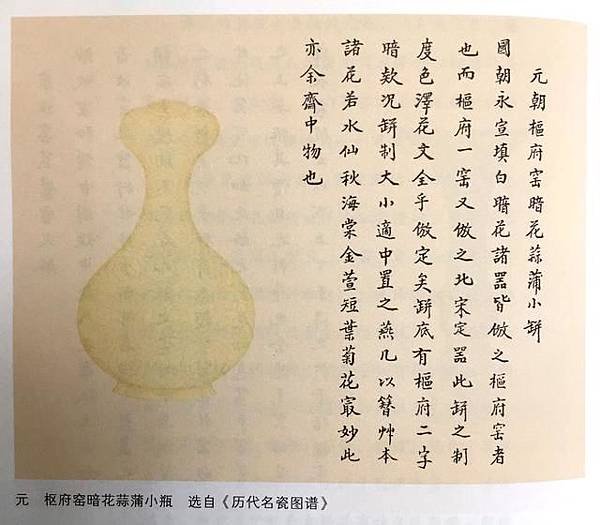 元朝樞府窑暗花蒜蒲小缾
國朝永宣填白暗花諸器皆倣之樞府窑者
也而樞府一窑又倣之北宋定器此缾之制
度色澤花文全乎倣定矣缾底有樞府二字
暗欵況缾制大小適中置之燕几以簪艸本
諸花若水仙秋海棠金萱短葉菊花寂妙此
亦余齋中物也
元 枢府窑暗花蒜蒲小瓶 选自《历代名瓷图谱》